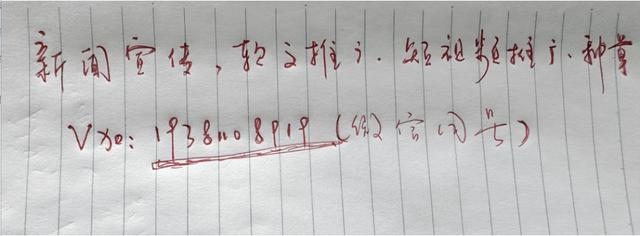 新闻宣传，软文推广.短视频推广.种草
Vxo: 19381108919 (微信同号)